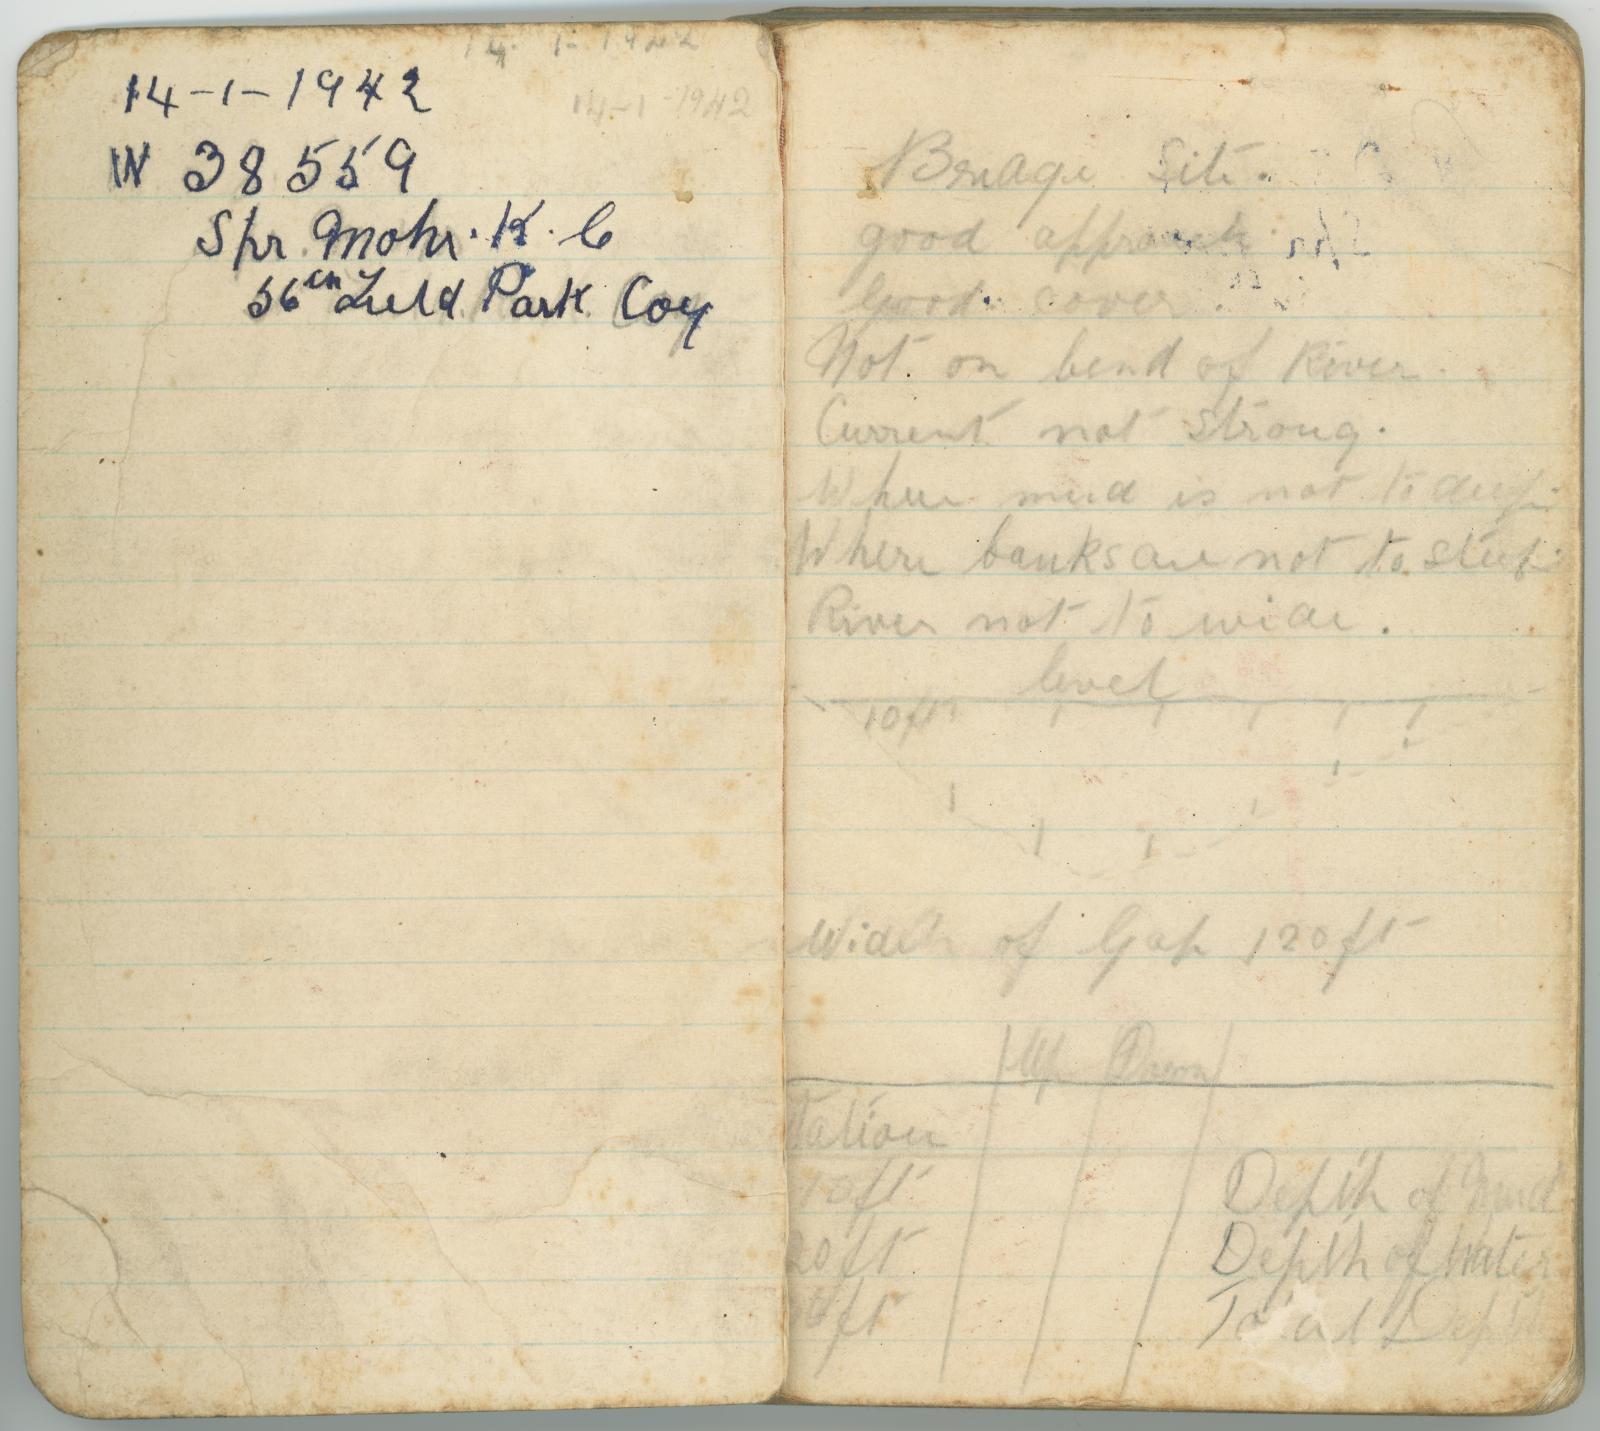 14-1-1942
14-1-1942
14-1-1942
W 38559
Spr Mohr. K. C
56th Field Park Coy
Bridge Site.
good approach
Good cover.
Not on bend of River.
Current not strong.
Where mud is not to deep.
Where banks are not to steep.
River not to wide.
level
10ft
Width of Gap 120ft
Up Down
tation
10ft
20ft
Depth of Mud
Depth of Water
Total Depth